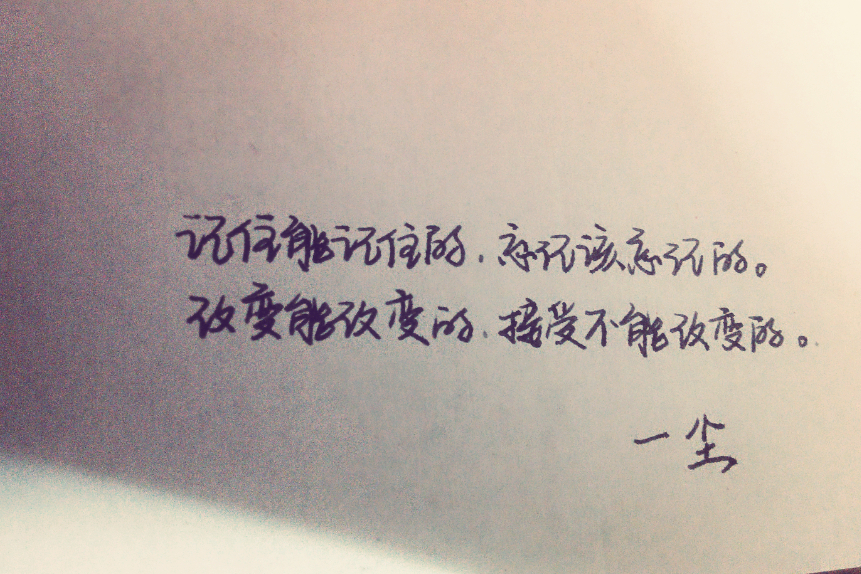 记住能记住的，忘记该忘记的。
改变能改变的，接受不能改变的。
一尘